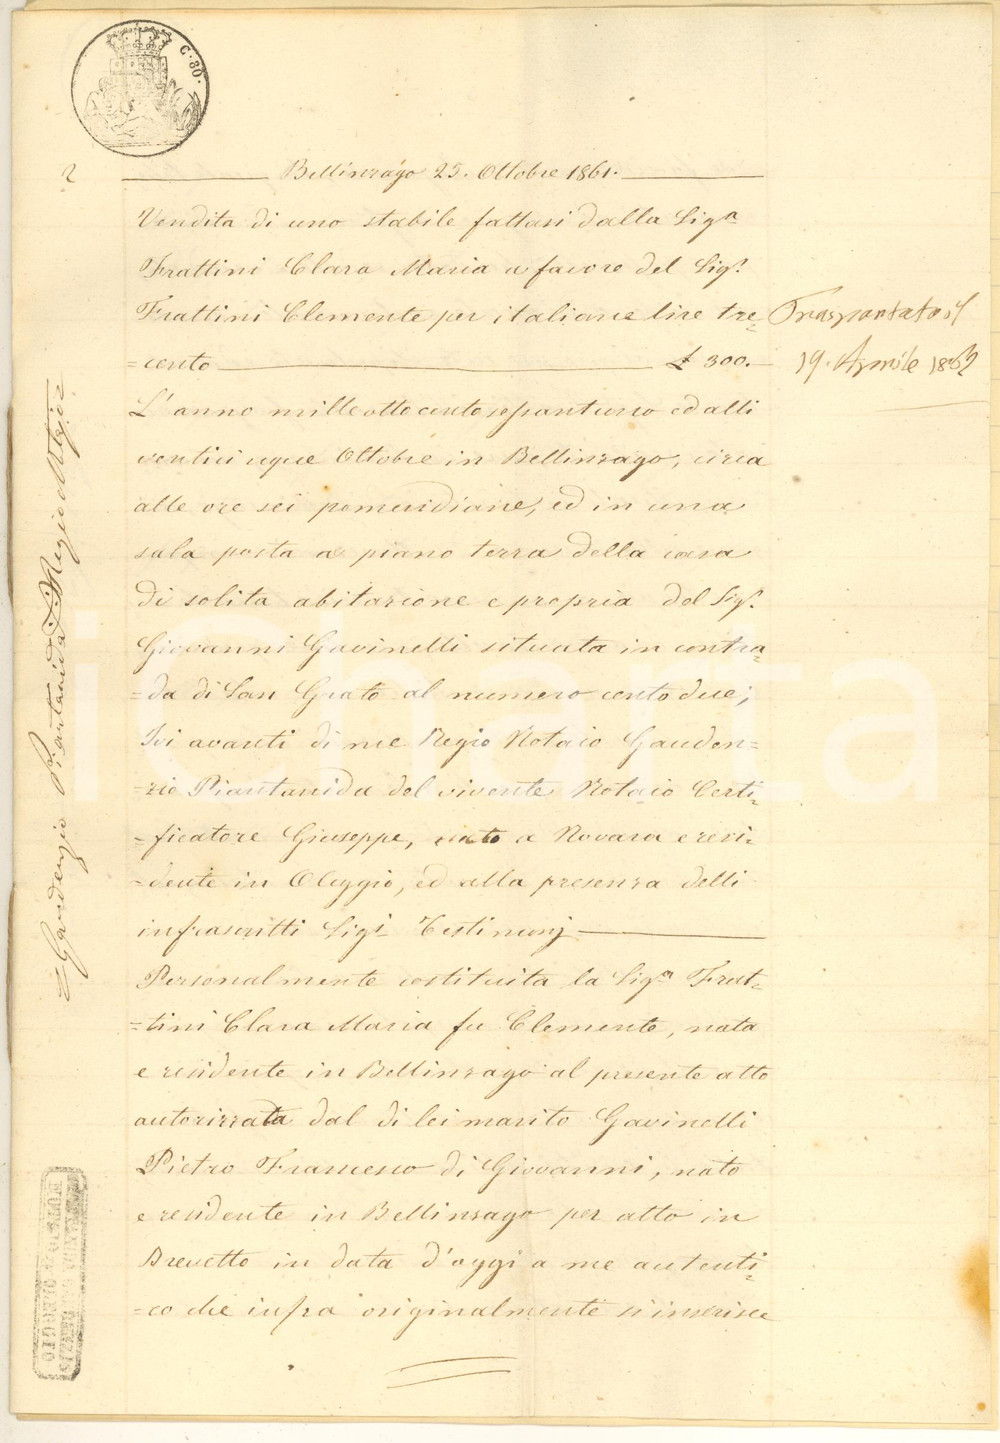 C. 80.
2
Bellinzago 25. Ottobre 1861.
Vendita di uno stabile fattasi dalla Sigª
Frattini Clara Maria a favore del Sigʳ
Frattini Clemente per italiane lire tre=
=cento £ 300.
Trasportatasi
19. Aprile 1862
L'anno mille ottocento sessantuno ed alli
venticinque Ottobre in Bellinzago, circa
alle ore sei pomeridiane, ed in una
sala posta a piano terra della casa
di solita abitazione e propria del Sigʳ
Giovanni Gavinelli situata in contra=
=da di San Grato al numero cento due;
Ivi avanti di me Regio Notaio Gauden=
=zio Piantanida del vivente Notaio Certi=
=ficatore Giuseppe, nato a Novara e resi=
=dente in Oleggio, ed alla presenza delli
infrascritti Sigⁱ Testimonj
Personalmente costituita la Sigª Frat=
=tini Clara Maria fu Clemente, nata
e residente in Bellinzago al presente atto
autorizzata dal di lei marito Gavinelli
Pietro Francesco di Giovanni, nato
e residente in Bellinzago per atto in
Brevetto in data d'oggi a me autenti=
=co che infra originalmente si inserisce
=Gaudenzio Piantanida Regio Notaio=
NOTAIO OLEGGIO
iCharta